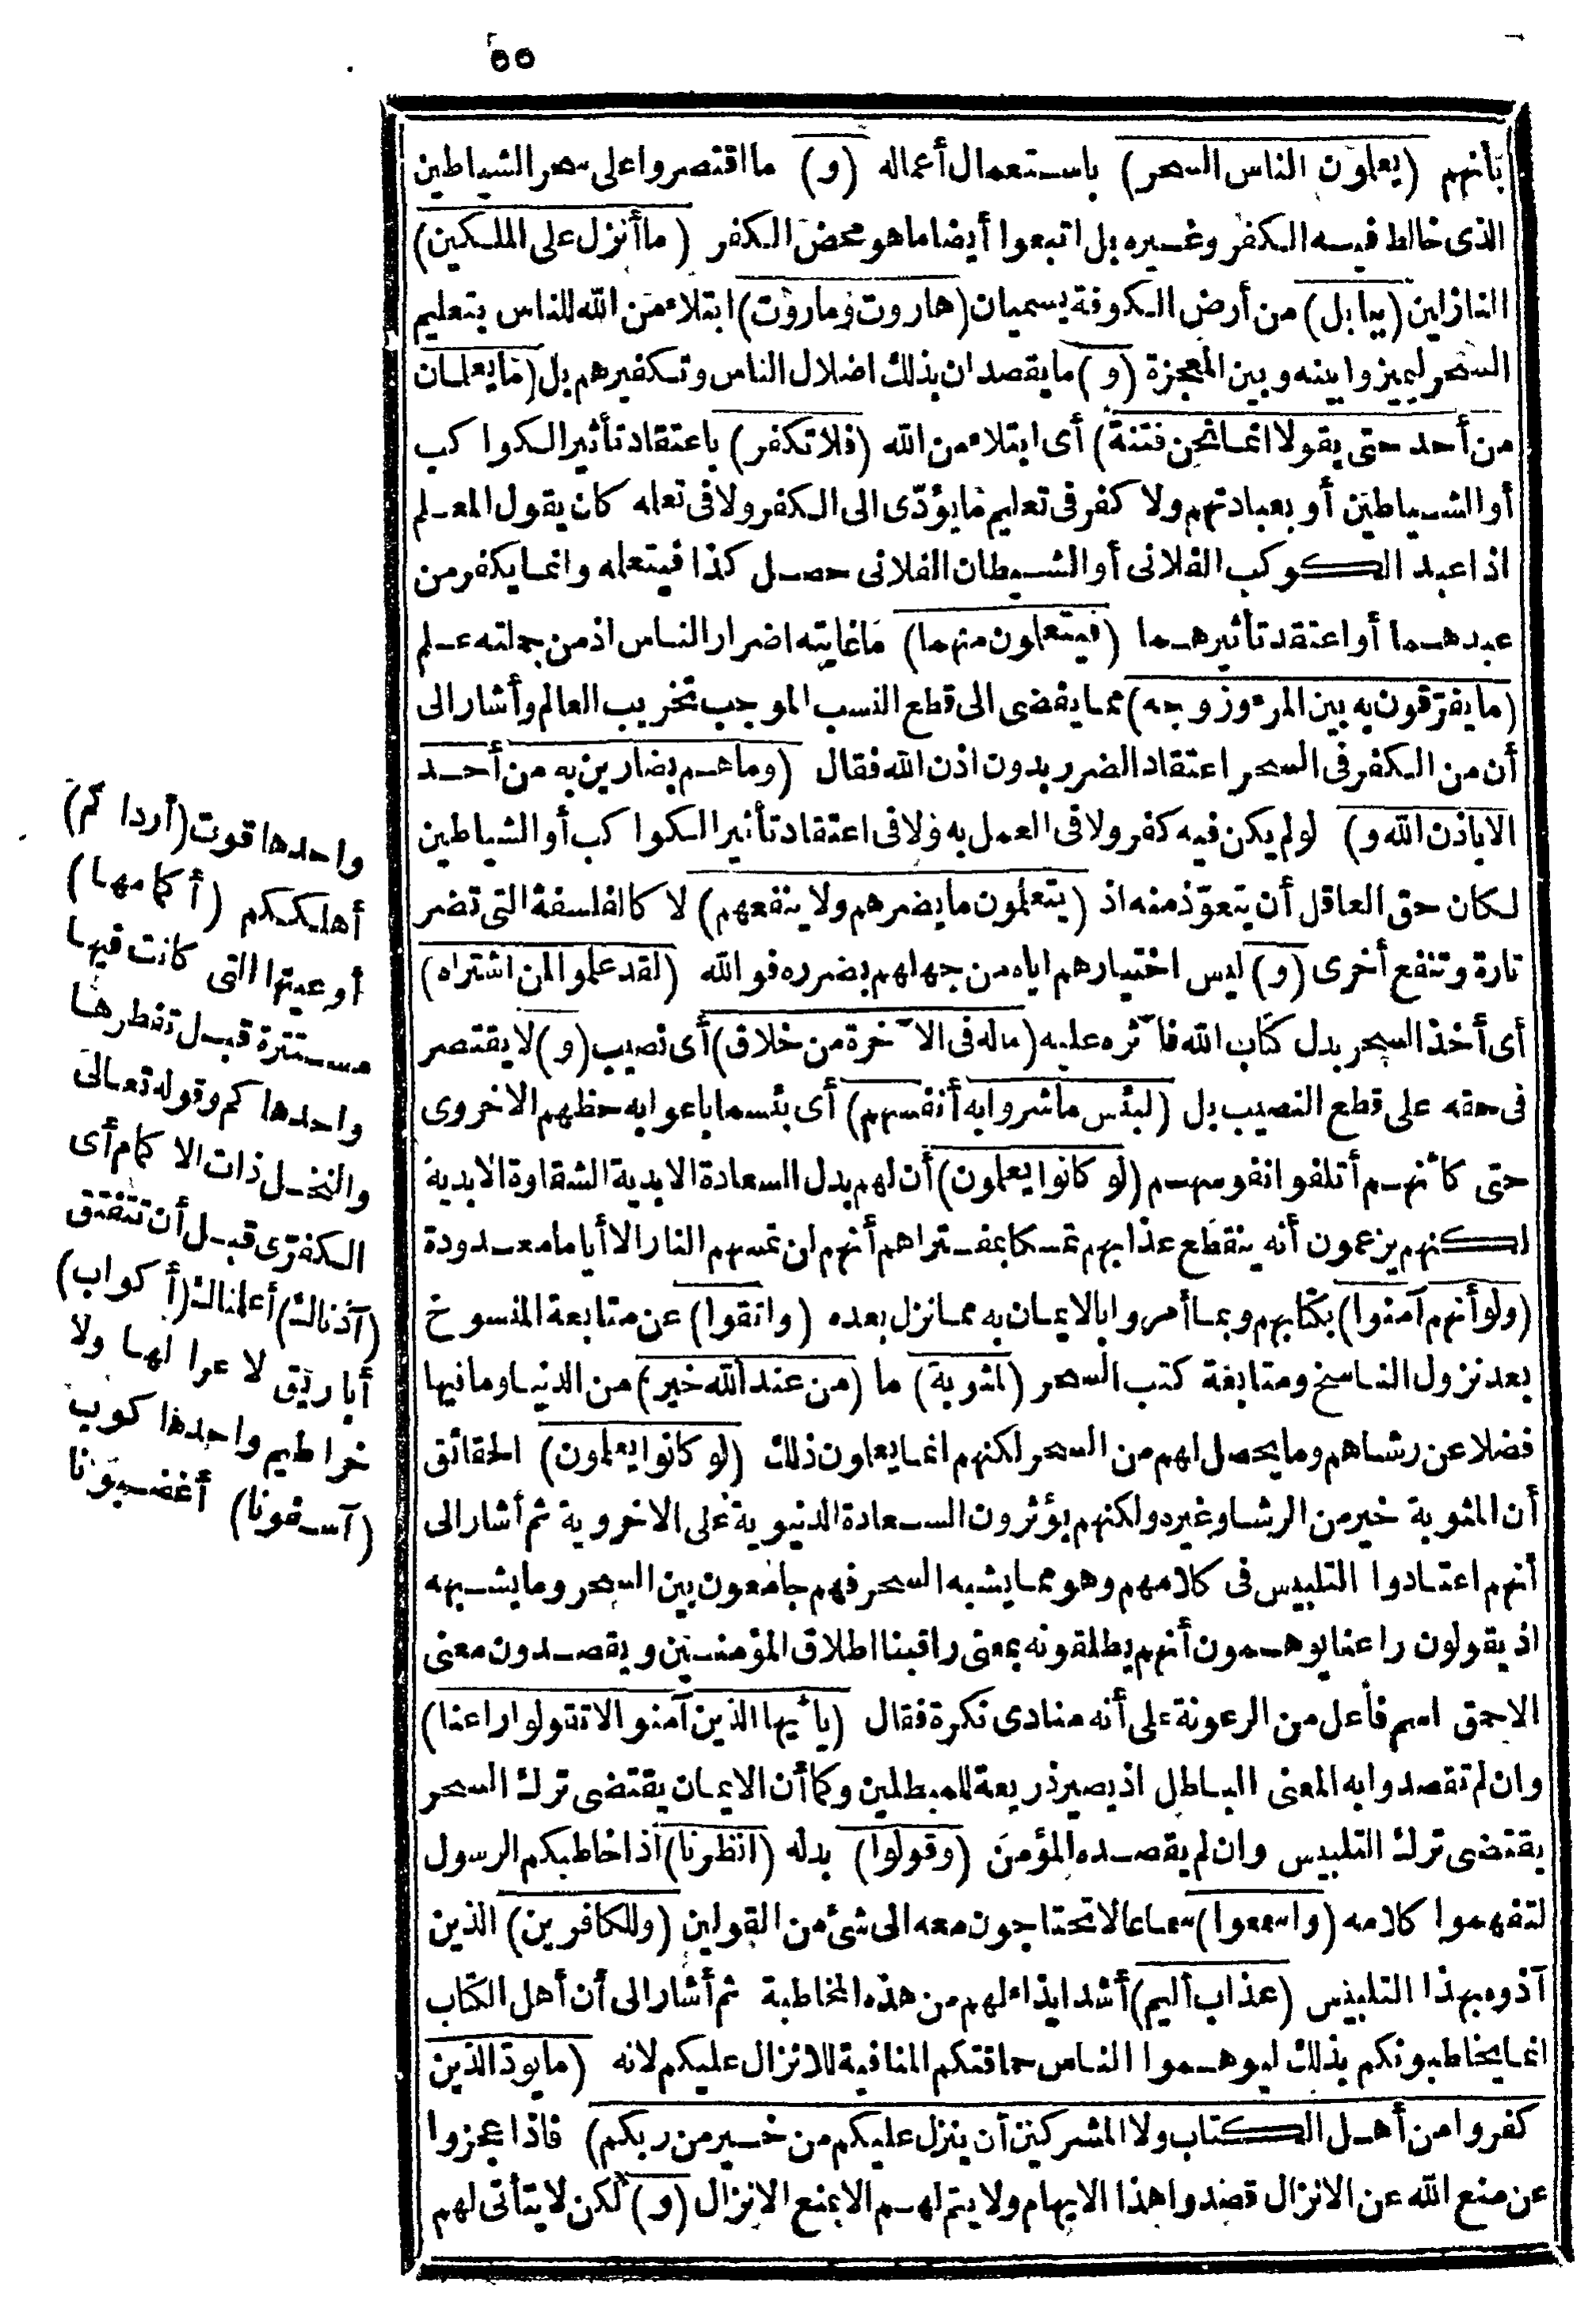 ٥٥
بأنهم (يعلمون الناس السحر) باستعمال أعماله (و) ما اقتصروا على سحر الشياطين
الذى خالط فيه الكفر وغيره بل اتبعوا أيضا ما هو محض الكفر (ما أنزل على الملكين)
النازلين (ببابل) من أرض الكوفة يسميان (هاروت وماروت) ابتلاء من الله للناس بتعليم
السحر ليميزوا بينه وبين المعجزة (و) ما يقصدان بذلك اضلال الناس وتكفيرهم بل (ما يعلمان
من أحد حتى يقولا انما نحن فتنة) أى ابتلاء من الله (فلا تكفر) باعتقاد تأثير الكواكب
أو الشياطين أو بعبادتهم ولا كفر فى تعليم ما يؤدّى الى الكفر ولا فى تعلمه كان يقول المعلم
اذا عبد الكوكب الفلانى أو الشيطان الفلانى حصل كذا فيتعلمه وانما يكفر من
عبدهما أو اعتقد تأثيرهما (فيتعلمون منهما) ما غايته اضرار الناس اذ من جملته علم
(ما يفرّقون به بين المرء وزوجه) مما يفضى الى قطع النسب الموجب تخريب العالم وأشار الى
أن من الكفر فى السحر اعتقاد الضرر بدون اذن الله فقال (وما هم بضارين به من أحد
الا باذن الله و) لو لم يكن فيه كفر ولا فى العمل به ولا فى اعتقاد تأثير الكواكب أو الشياطين
لكان حق العاقل أن يتعوّذ منه اذ (يتعلمون ما يضرهم ولا ينفعهم) لا كالفلسفة التى تضر
تارة وتنفع أخرى (و) ليس اختيارهم اياه من جهلهم بضرره فو الله (لقد علموا لمن اشتراه)
أى أخذ السحر بدل كتاب الله فآثره عليه (ماله فى الآخرة من خلاق) أى نصيب (و) لا يقتصر
فى حقه على قطع النصيب بل (لبئس ما شروا به أنفسهم) أى بئسما باعوا به حظهم الاخروى
حتى كأنهم أتلفوا نفوسهم (لو كانوا يعلمون) أن لهم بدل السعادة الابدية الشقاوة الابدية
لكنهم يزعمون أنه ينقطع عذابهم تمسكا بمفتراهم أنهم لن تمسهم النار الا أياما معدودة
(ولو أنهم آمنوا) بكتابهم وبما أمروا بالايمان به مما نزل بعده (واتقوا) عن متابعة المنسوخ
بعد نزول الناسخ ومتابعة كتب السحر (لمثوبة) ما (من عند الله خير) من الدنيا وما فيها
فضلا عن رشاهم وما يحصل لهم من السحر لكنهم انما يعلمون ذلك (لو كانوا يعلمون) الحقائق
أن المثوبة خير من الرشا وغيره ولكنهم يؤثرون السعادة الدنيوية على الاخروية ثم أشار الى
أنهم اعتادوا التلبيس فى كلامهم وهو مما يشبه السحر فهم جامعون بين السحر وما يشبهه
اذ يقولون راعنا يوهمون أنهم يطلقونه بمعنى راقبنا اطلاق المؤمنين ويقصدون معنى
الاحمق اسم فاعل من الرعونة على أنه منادى نكرة فقال (يا أيها الذين آمنوا لا تقولوا راعنا)
وان لم تقصدوا به المعنى الباطل اذ يصير ذريعة للمبطلين وكما أن الايمان يقتضى ترك السحر
يقتضى ترك التلبيس وان لم يقصده المؤمن (وقولوا) بدله (انظرنا) اذا خاطبكم الرسول
لتفهموا كلامه (واسمعوا) سماعا لا تحتاجون معه الى شئ من القولين (وللكافرين) الذين
آذوه بهذا التلبيس (عذاب أليم) أشد ايذاء لهم من هذه المخاطبة ثم أشار الى أن أهل الكتاب
انما يخاطبونكم بذلك ليوهموا الناس حماقتكم المنافية للانزال عليكم لانه (ما يودّ الذين
كفروا من أهل الكتاب ولا المشركين أن ينزل عليكم من خير من ربكم) فاذا عجزوا
عن منع الله عن الانزال قصدوا هذا الايهام ولا يتم لهم الا بمنع الانزال (و) لكن لا يتأتى لهم
واحدها قوت (أرداكم)
أهلككم (أكمامها)
أوعيتها التى كانت فيها
مستترة قبل تفطرها
واحدها كم وقوله تعالى
والنخل ذات الاكمام أى
الكفرّى قبل أن تتفتق
(آذناك) أعلمناك (أكواب)
أباريق لا عرا لها ولا
خراطيم واحدها كوب
(آسفونا) أغضبونا